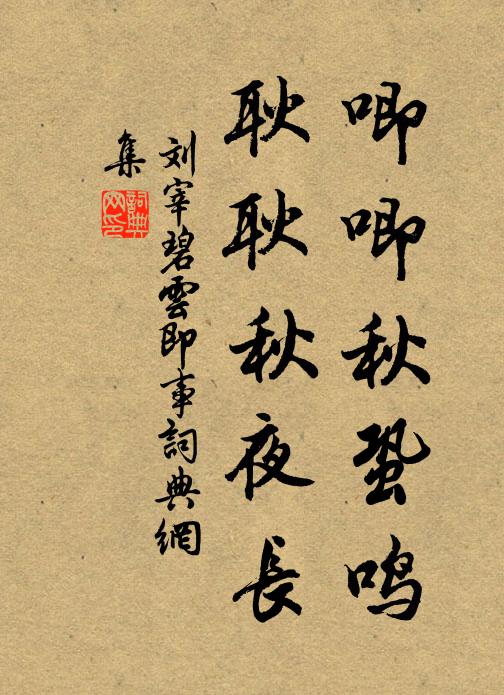 唧唧秋蛩鸣
耿耿秋夜長
刘宰碧雲即事詞典網
集
詞典
网印